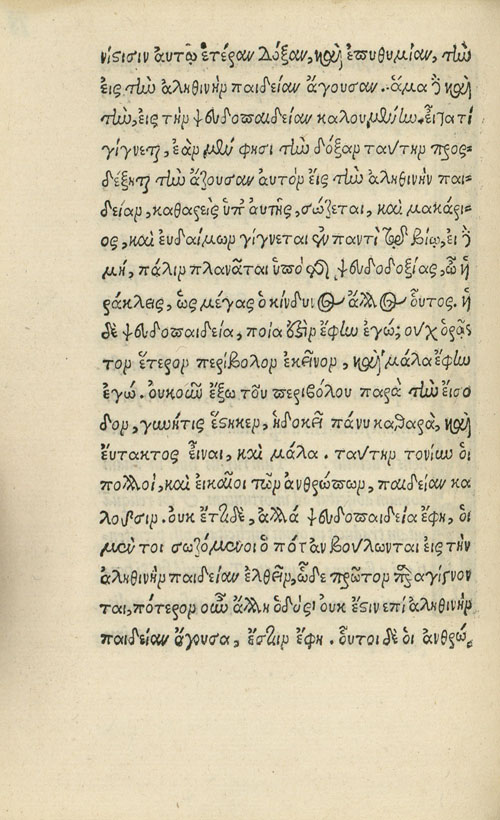 νίστσιν αυτῷ ἑτέραν Δόξαν, καὶ ἐπυθυμίαν, τὴν
εις τὴν αληθινὴν παιδείαν ἄγουσαν. ἅμα δὲ καὶ
τὴν, εις τὴν ψευδοπαιδείαν καλουμένην. εἶτα τί
γίγνεται, ἐὰν μέν φησι τὴν δόξαν ταύτην προς-
δέξηται τὴν ἄξουσαν αυτὸν εἴς τὴν ἀληθινὴν παι-
δείαν, καθαρεὶς ὑπ' αυτῆς, σώζεται, καὶ μακάρι-
ος, καὶ ευδαίμων γίγνεται ἐν παντὶ τῷ βίῳ, εἰ δὲ
μή, πάλιν πλανᾶται ὑπὸ τῆς ψευδοδοξίας, ὦ ἡ
ράκλεις, ὡς μέγας ὁ κίνδυνος ἄλλος οὗτος. ἡ
δὲ ψευδοπαιδεία, ποία ἐστὶν ἔφην ἐγώ; ουχ ὁρᾷς
τον ἕτερον περίβολον ἐκεῖνον, καὶ μάλα ἔφην
ἐγώ. ουκοῦν ἔξω τοῦ περιβόλου παρὰ τὴν εἴσο
δον, γυνή τις ἕστηκεν, ἡ δοκεῖ πάνυ καθαρὰ, καὶ
ἔυτακτος εἶναι, καὶ μάλα. ταύτην τονίυν ὁι
πολλοὶ, καὶ εικαῖοι τῶν ἀνθρώπων, παιδείαν κα
λοῦσιν. ουκ ἔστι δὲ, ἀλλά ψευδοπαιδεία ἔφη, ὁι
μέν τοι σωζόμενοι ὁ πότ' ἀν βούλωνται εις τὴν
ἀληθινὴν παιδείαν ἐλθεῖν, ὧδε πρῶτον παραγίγνον
ται, πότερον οὖν ἄλλη ὁδὸς ουκ ἔστιν επί ἀληθινὴν
παιδείαν ἄγουσα, ἔστιν ἔφη. οὗτοι δὲ ὁι ἀνθρώ,